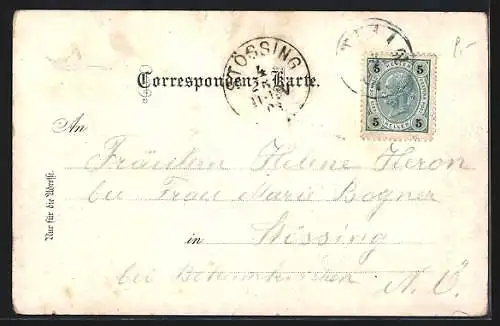 STÖSSING
4
Correspondenz-Karte.
5 5
HELLER HELLER
5 5
An
Fräulein Helene Heron
bei Frau Marie Bogner
in Stössing
bei Böheimkirchen N. Ö.
Nur für die Adresse.